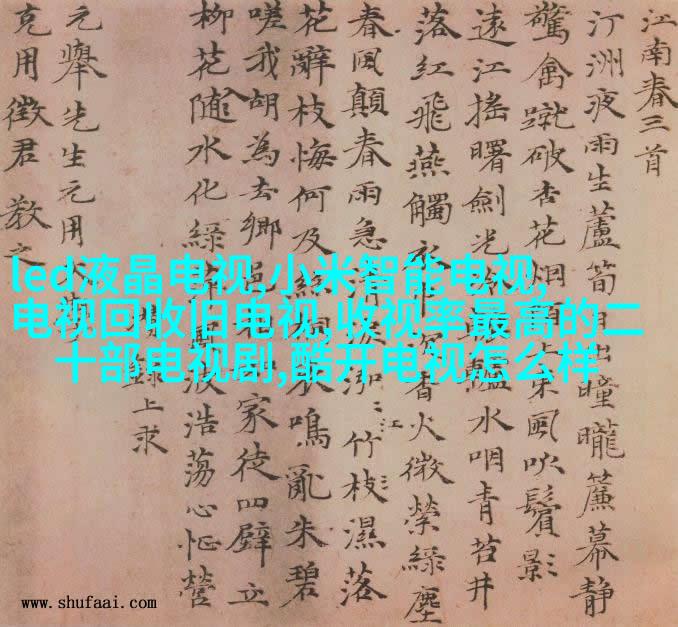 江南春三首
汀洲夜雨生蘆筍日出曈曨簾幕静
驚禽蹴破杏花烟陌上東風吹鬢影
遠江摇曙劍光水咽青苔井
落紅飛燕觸衣巾沉香火微縈緑塵
春風顛春雨急清淚泓〻江竹枝濕落
花辭枝悔何及鳴亂朱碧
嗟我胡為去鄉邑家徒四壁立
柳花随水化緑波浩蕩心怔營
録上求
元舉先生元用
克用徵君教之
led液晶电视,小米智能电视,
电视回收旧电视,收视率最高的二
十部电视剧,酷开电视怎么样
www.shufaai.com